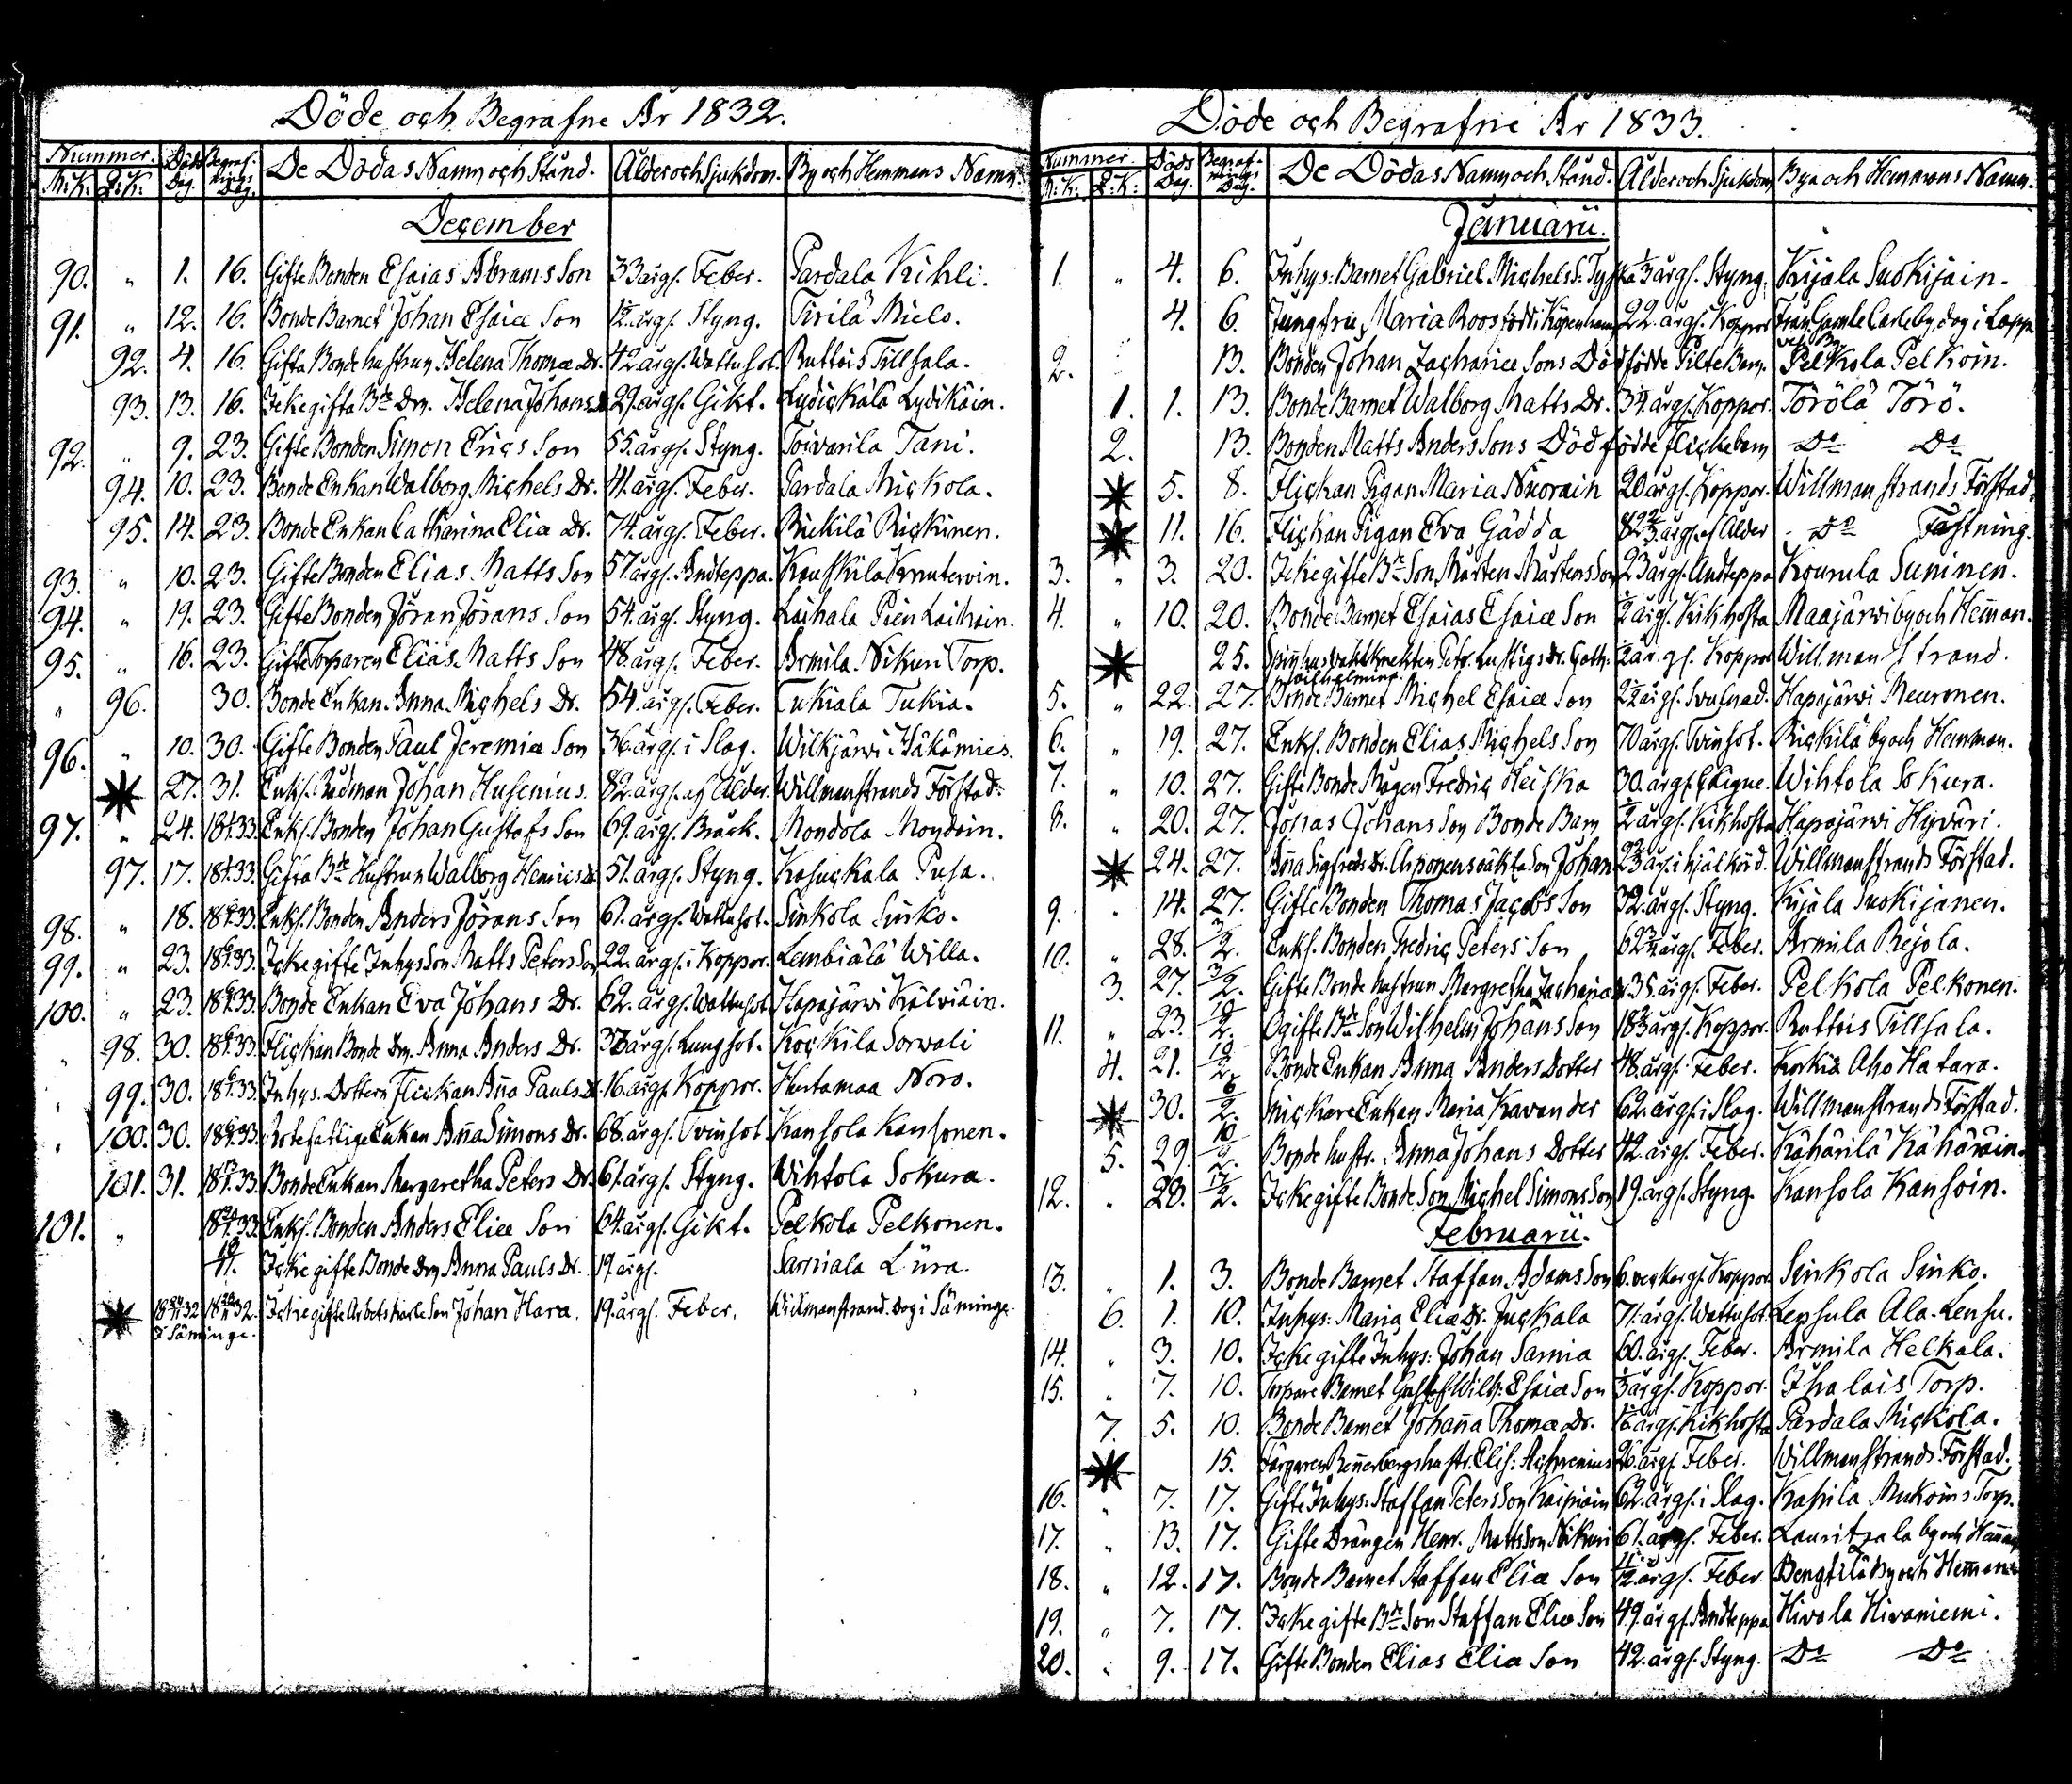 Döde och Begrafne År 1832.
Nummer. Döds Dag. Begrafnings Dag. De Dödas Namn och Stånd. Ålder och Sjukdom. By och Hemmans Namn.
M:K: Q:K:
December
90. " 1. 16. Gifte Bonden Esaias Abrams Son 33 årgl. Feber. Pardala Kihli.
91. " 12. 16. Bonde Barnet Johan Esaiæ Son 1/2 årgl. Styng. Tirilä Mielo.
92. 4. 16. Gifta Bonde hustrun Helena Thomæ Dr. 42 årgl. Wattusot. Ruttois Tillsala.
93. 13. 16. Icke gifta Bde Drn. Helena Johans Dr 29. årgl. Gikt. Lydickälä Lydikäin.
92. " 9. 23. Gifte Bonden Simon Erics Son 55. årgl. Styng. Toivarila Tani.
94. 10. 23. Bonde Enkan Walborg Michels Dr. 41. årgl. Feber. Pardala Mickola.
95. 14. 23. Bonde Enkan Catharina Eliæ Dr. 74. årgl. Feber. Rickilä Rickinen.
93. " 10. 23. Gifte Bonden Elias Matts Son 57. årgl. Andteppa. Kauskila Knutervin.
94. " 19. 23. Gifte Bonden Jöran Jörans Son 54. årgl. Styng. Laihala Pien Laihain.
95. " 16. 23. Gifte Torparen Elias Matts Son 48. årgl. Feber. Armila Nikuri Torp.
" 96. 30. Bonde Enkan Anna Michels Dr. 54. årgl. Feber. Tukiala Tukia.
96. " 10. 30. Gifte Bonden Paul Jeremiæ Son 36. årgl. i Slag. Wilkjärwi Häkämies.
27. 31. Enkl. Rådman Johan Husenius. 82. årgl. af Ålder. Willmanstrands Förstad.
97. " 24. 18 1/1 33. Enkl. Bonden Johan Gustafs Son 69. årgl. Bråck. Mondola Mondoin.
97. 17. 18 1/1 33. Gifta Bde Hustrun Walborg Henrics Dr 51. årgl. Styng. Kasuckala Pusa.
98. " 18. 18 6/1 33. Enkl. Bonden Anders Jörans Son 61. årgl. Wattusot. Sinkola Sinko.
99. " 23. 18 6/1 33. Icke gifte Inhys Son Matts Peters Son 22. årgl. i Koppor. Lembiälä Willa.
100. " 23. 18 6/1 33. Bonde Enkan Eva Johans Dr. 62. årgl. Wattusot. Hapajärwi Kälviäin.
" 98. 30. 18 6/1 33. Flickan Bonde Drn. Anna Anders Dr. 37 årgl. Lungsot. Kockila Sorvali
" 99. 30. 18 6/1 33. Inhys. Dottern Flickan Anna Pauls Dr 16. årgl. Koppor. Hurtamaa Noro.
" 100. 30. 18 6/1 33. Rotefattige Enkan Anna Simons Dr. 68. årgl. Tvinsot. Kansola Kansonen.
101. 31. 18 13/1 33. Bonde Enkan Margaretha Peters Dr. 61. årgl. Styng. Wihtola Sokura.
101. " 18 20/1 33. Enkl. Bonden Anders Eliæ Son 64. årgl. Gikt. Pelkola Pelkonen.
Icke gifte Bonde Drn Anna Pauls Dr. 19. årgl. Sarviala Lüra.
Icke gifte Arbetskarls Son Johan Hara. 19. årgl. Feber. Willmanstrand. Dog i Säminge.
i Säminge.
Döde och Begrafne År 1833.
Nummer. Döds Dag. Begrafnings Dag. De Dödas Namn och Stånd. Ålder och Sjukdom Bya och Hemmans Namn.
M:K: Q:K:
Januarii.
1. " 4. 6. Inhys: Barnet Gabriel Michels S: 1/3 årgl. Styng. Kijala Suokijain.
4. 6. Jungfru Maria Roos född i Köpenhamn 22. årgl. Koppor Från Gamle Carleby, dog i Lapp
2. 13. Bonden Johan Zachariæ Sons Död födde Pilte Barn. Pelkola Pelkoin.
1. 1. 13. Bonde Barnet Walborg Matts Dr. 3/4. årgl. Koppor. Törölä Törö.
2. 13. Bonden Matts Anders Sons Död födde Flickebarn Do Do
5. 8. Flickan Pigan Maria Nuorain 20 årgl. Koppor. Willmanstrands Förstad.
11. 16. Flickan Pigan Eva Gädda årgl. af Ålder Do Fästning.
3. " 3. 20. Icke gifte Bde Son, Mårten Mårtens Son 23 årgl. Andteppa Kourula Suninen.
4. " 10. 20. Bonde Barnet Esaias Esaiæ Son 1/2 årgl. Kikhosta Maajärwi by och Hemman.
25. Spinhus vaktknekten Petr. Lustigs Dr. Cath: 1/2 årgl. Koppor Willmanstrand.
Wilhelmina.
5. " 22. 27. Bonde Barnet Michel Esaiæ Son 2 1/2 årgl. Svulnad. Hapajärwi Meuronen.
6. " 19. 27. Enkl. Bonden Elias Michels Son 70 årgl. Tvinsot. Rickilä by och Hemman.
7. " 10. 27. Gifte Bonde Mågen Fredric Heiska 30. årgl. Wihtola Sokura.
8. " 20. 27. Johas Johans Son Bonde Barn 1/2 årgl. Kikhosta Hapajärwi Hyväri.
24. 27. Anna Sigfreds Dr. Asponens oäkta Son Johan årgl. ihjälkörd. Willmanstrands Förstad.
9. " 14. 27. Gifte Bonden Thomas Jacobs Son 32. årgl. Styng. Kijala Suokijanen.
10. " 28. 3/2. Enkl. Bonden Fredric Peters Son årgl. Feber. Armila Rejola.
3. 27. 3/2. Gifte Bonde hustrun Margretha Zachariæ Dr 35. årgl. Feber. Pelkola Pelkonen.
11. " 23. 10/2. Ogifte Bde Son Wilhelm Johans Son årgl. Koppor. Ruttois Tillsala.
4. 21. 10/2. Bonde Enkan Anna Anders Dotter 48. årgl. Feber. Korkia Aho Hatara.
30. 6/2. Enkan Maria Kavander 62. årgl. i Slag. Willmanstrands Förstad.
5. 29. 10/2. Bonde hustr. Anna Johans Dotter 42. årgl. Feber. Kähärilä Kähäräin.
12. " 28. 17/2. Icke gifte Bonde Son, Michel Simons Son 19. årgl. Styng. Kansola Kansoin.
Februarii.
13. " 1. 3. Bonde Barnet Staffan Adams Son 6. veckorgl. Koppor. Sinkola Sinko.
6. 1. 10. Inhys: Maria Eliæ Dr. Juckala 71. årgl. Wattusot. Lensula Ala-Lensu.
14. " 3. 10. Icke gifte Inhys: Johan Sarnia 60. årgl. Feber. Armila Helkala.
15. " 7. 10. Torpare Barnet Gustaf Wilh: Esaiæ Son 1/3 årgl. Koppor. Ihalais Torp.
7. 5. 10. Bonde Barnet Johanna Thomæ Dr. årgl. Kikhosta Pardala Mickola.
15. Färgaren Rennerbergs hustr. Elis: 26. årgl. Feber. Willmanstrands Förstad.
16. " 7. 17. Gifte Inhys: Staffan Peters Son Kaipiain 62. årgl. i Slag. Kasula Mukoins Torp.
17. " 13. 17. Gifte Drängen Henr. Matts Son Nikuri 61. årgl. Feber. Lauritzala by och Hemman
18. " 12. 17. Bonde Barnet Staffan Eliæ Son 11/12 årgl. Feber Bengtilä By och Hemman
19. " 7. 17. Icke gifte Bde Son Staffan Eliæ Son 49. årgl. Andteppa Hivola Hivaniemi.
20. " 9. 17. Gifte Bonden Elias Eliæ Son 42. årgl. Styng. Do Do